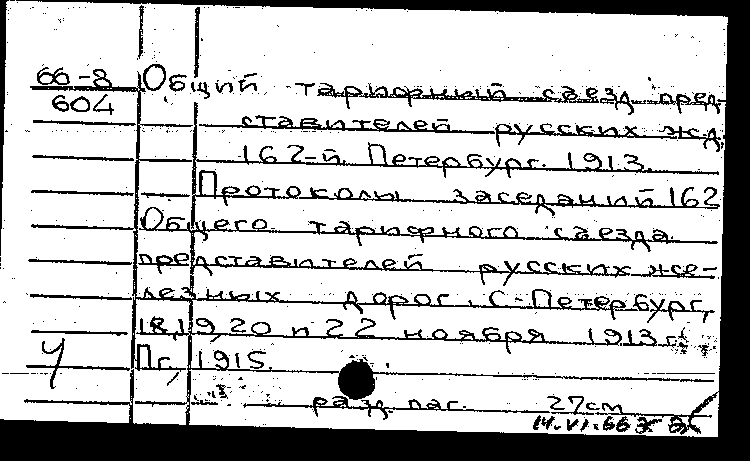 66-8
604
Общий тарифный съезд пред-
ставителей русских жд.
162-й. Петербург. 1913.
Протоколы заседаний 162
Общего тарифного съезда
представителей русских же-
лезных дорог. С-Петербург,
18,19,20 и 22 ноября 1913 г.
Ч Пг., 1915.
разд. паг. 27cm
14.VI.66